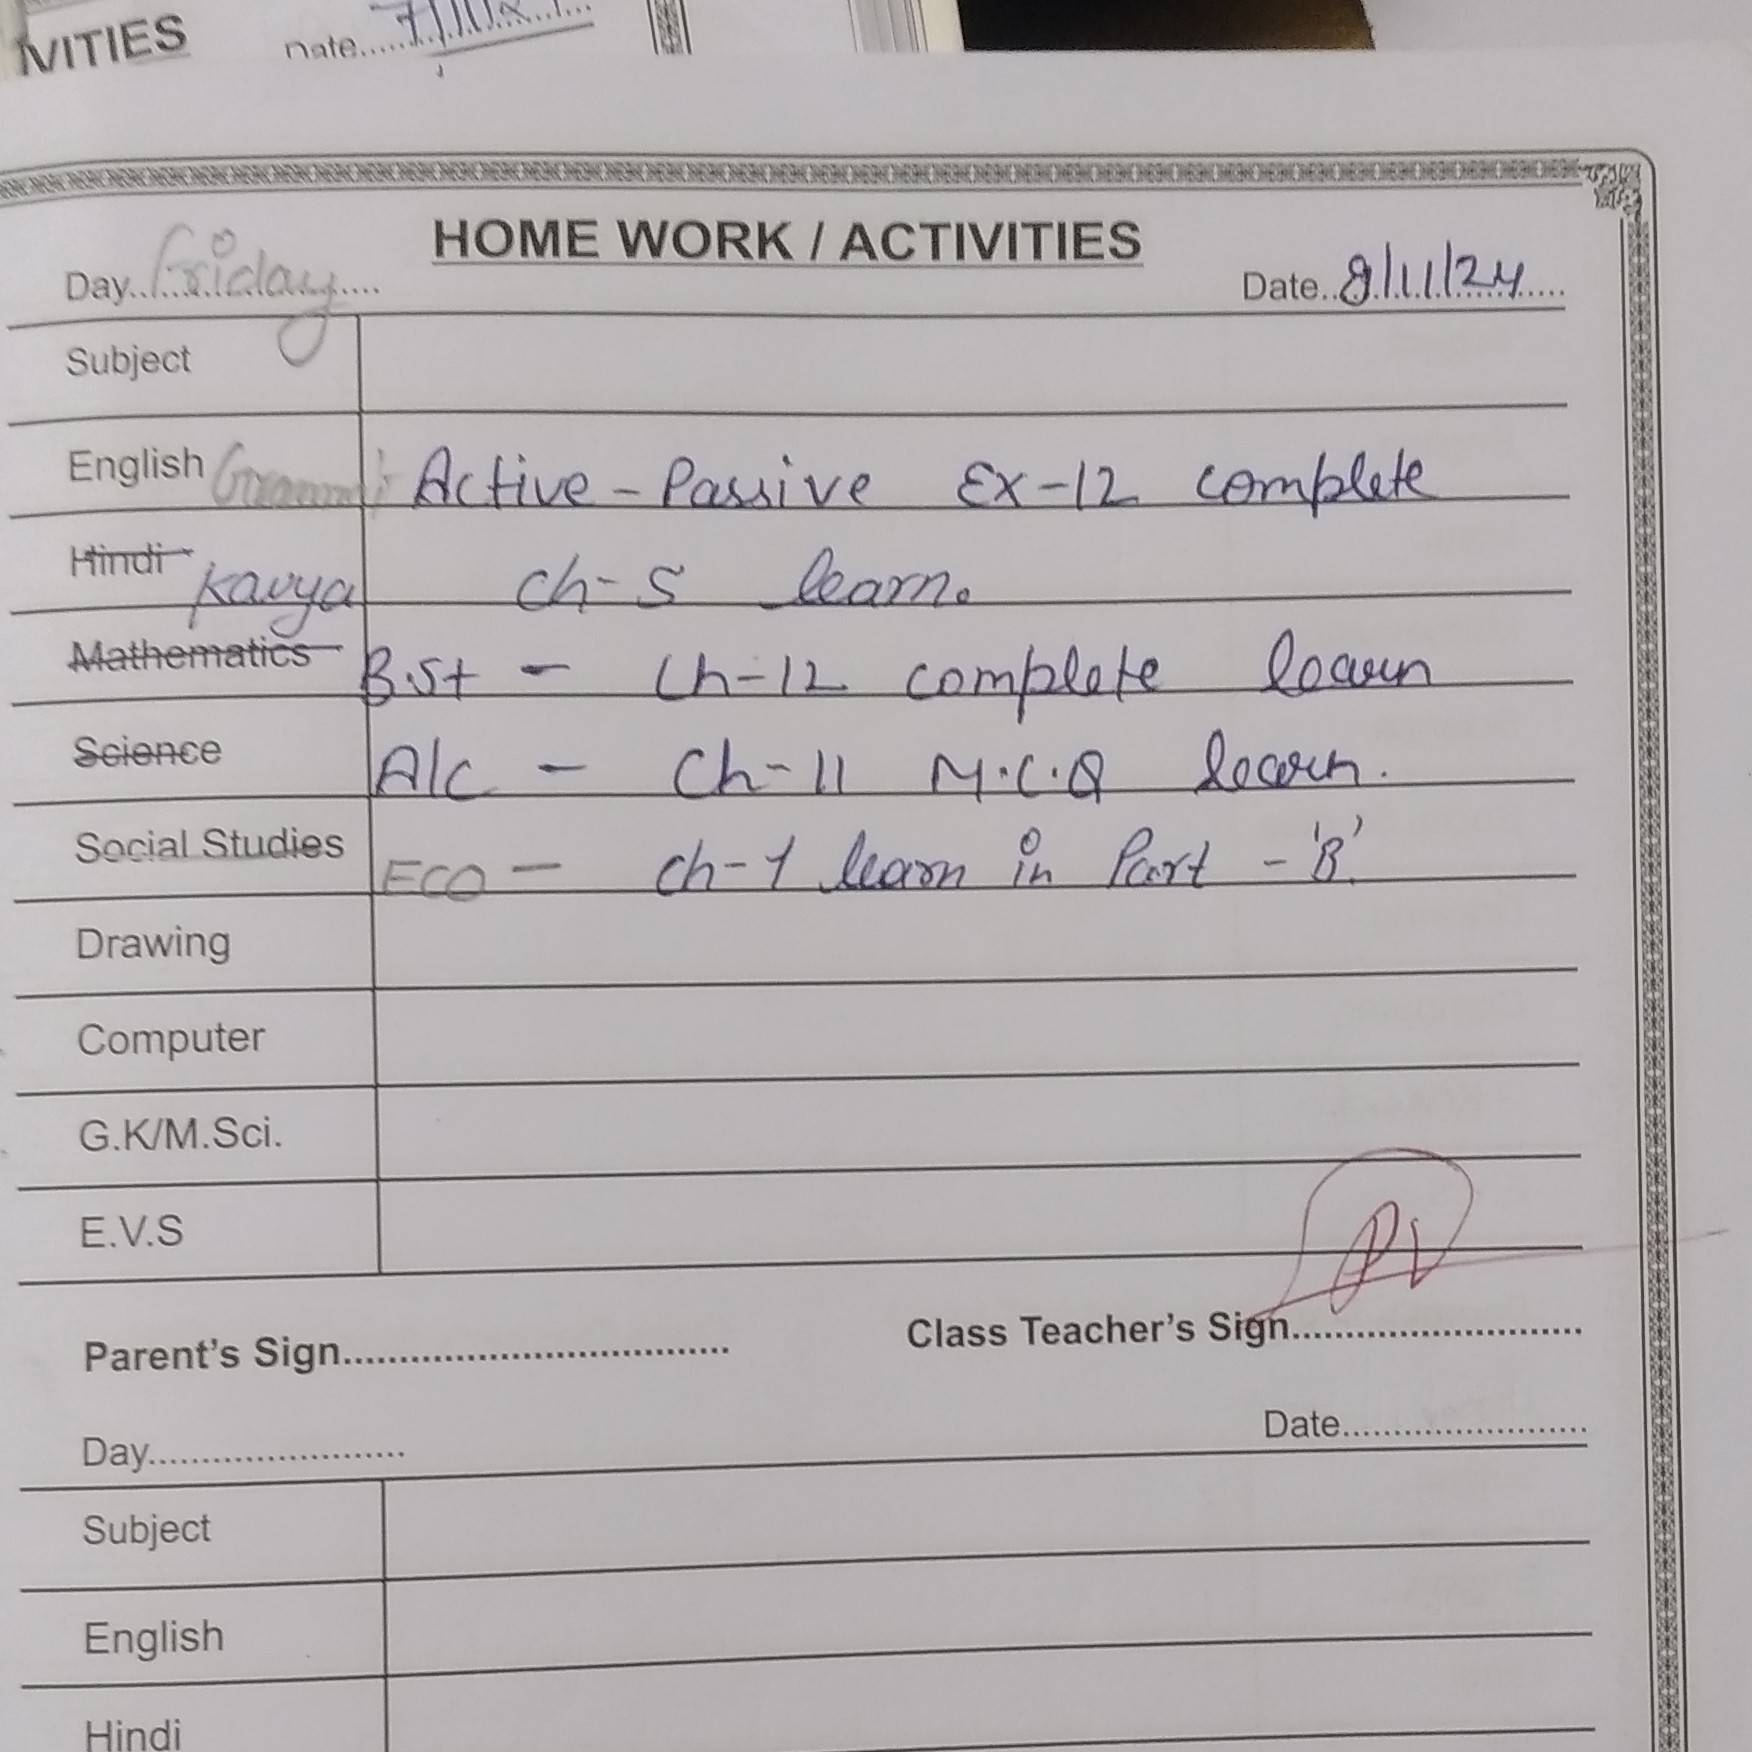 IVITIES Date.....7/11/
HOME WORK / ACTIVITIES
Day..Friday.... Date..8/11/24....
Subject
English Gramm Active - Passive Ex-12 complete
Hindi Kavya Ch-5 learn.
Mathematics B.St - Ch-12 complete learn
Science A/C - Ch-11 M.C.Q learn.
Social Studies ECO - Ch-1 learn in Part - 'B'.
Drawing
Computer
G.K/M.Sci.
E.V.S
Parent's Sign................................... Class Teacher's Sign............................
Day........................ Date........................
Subject
English
Hindi